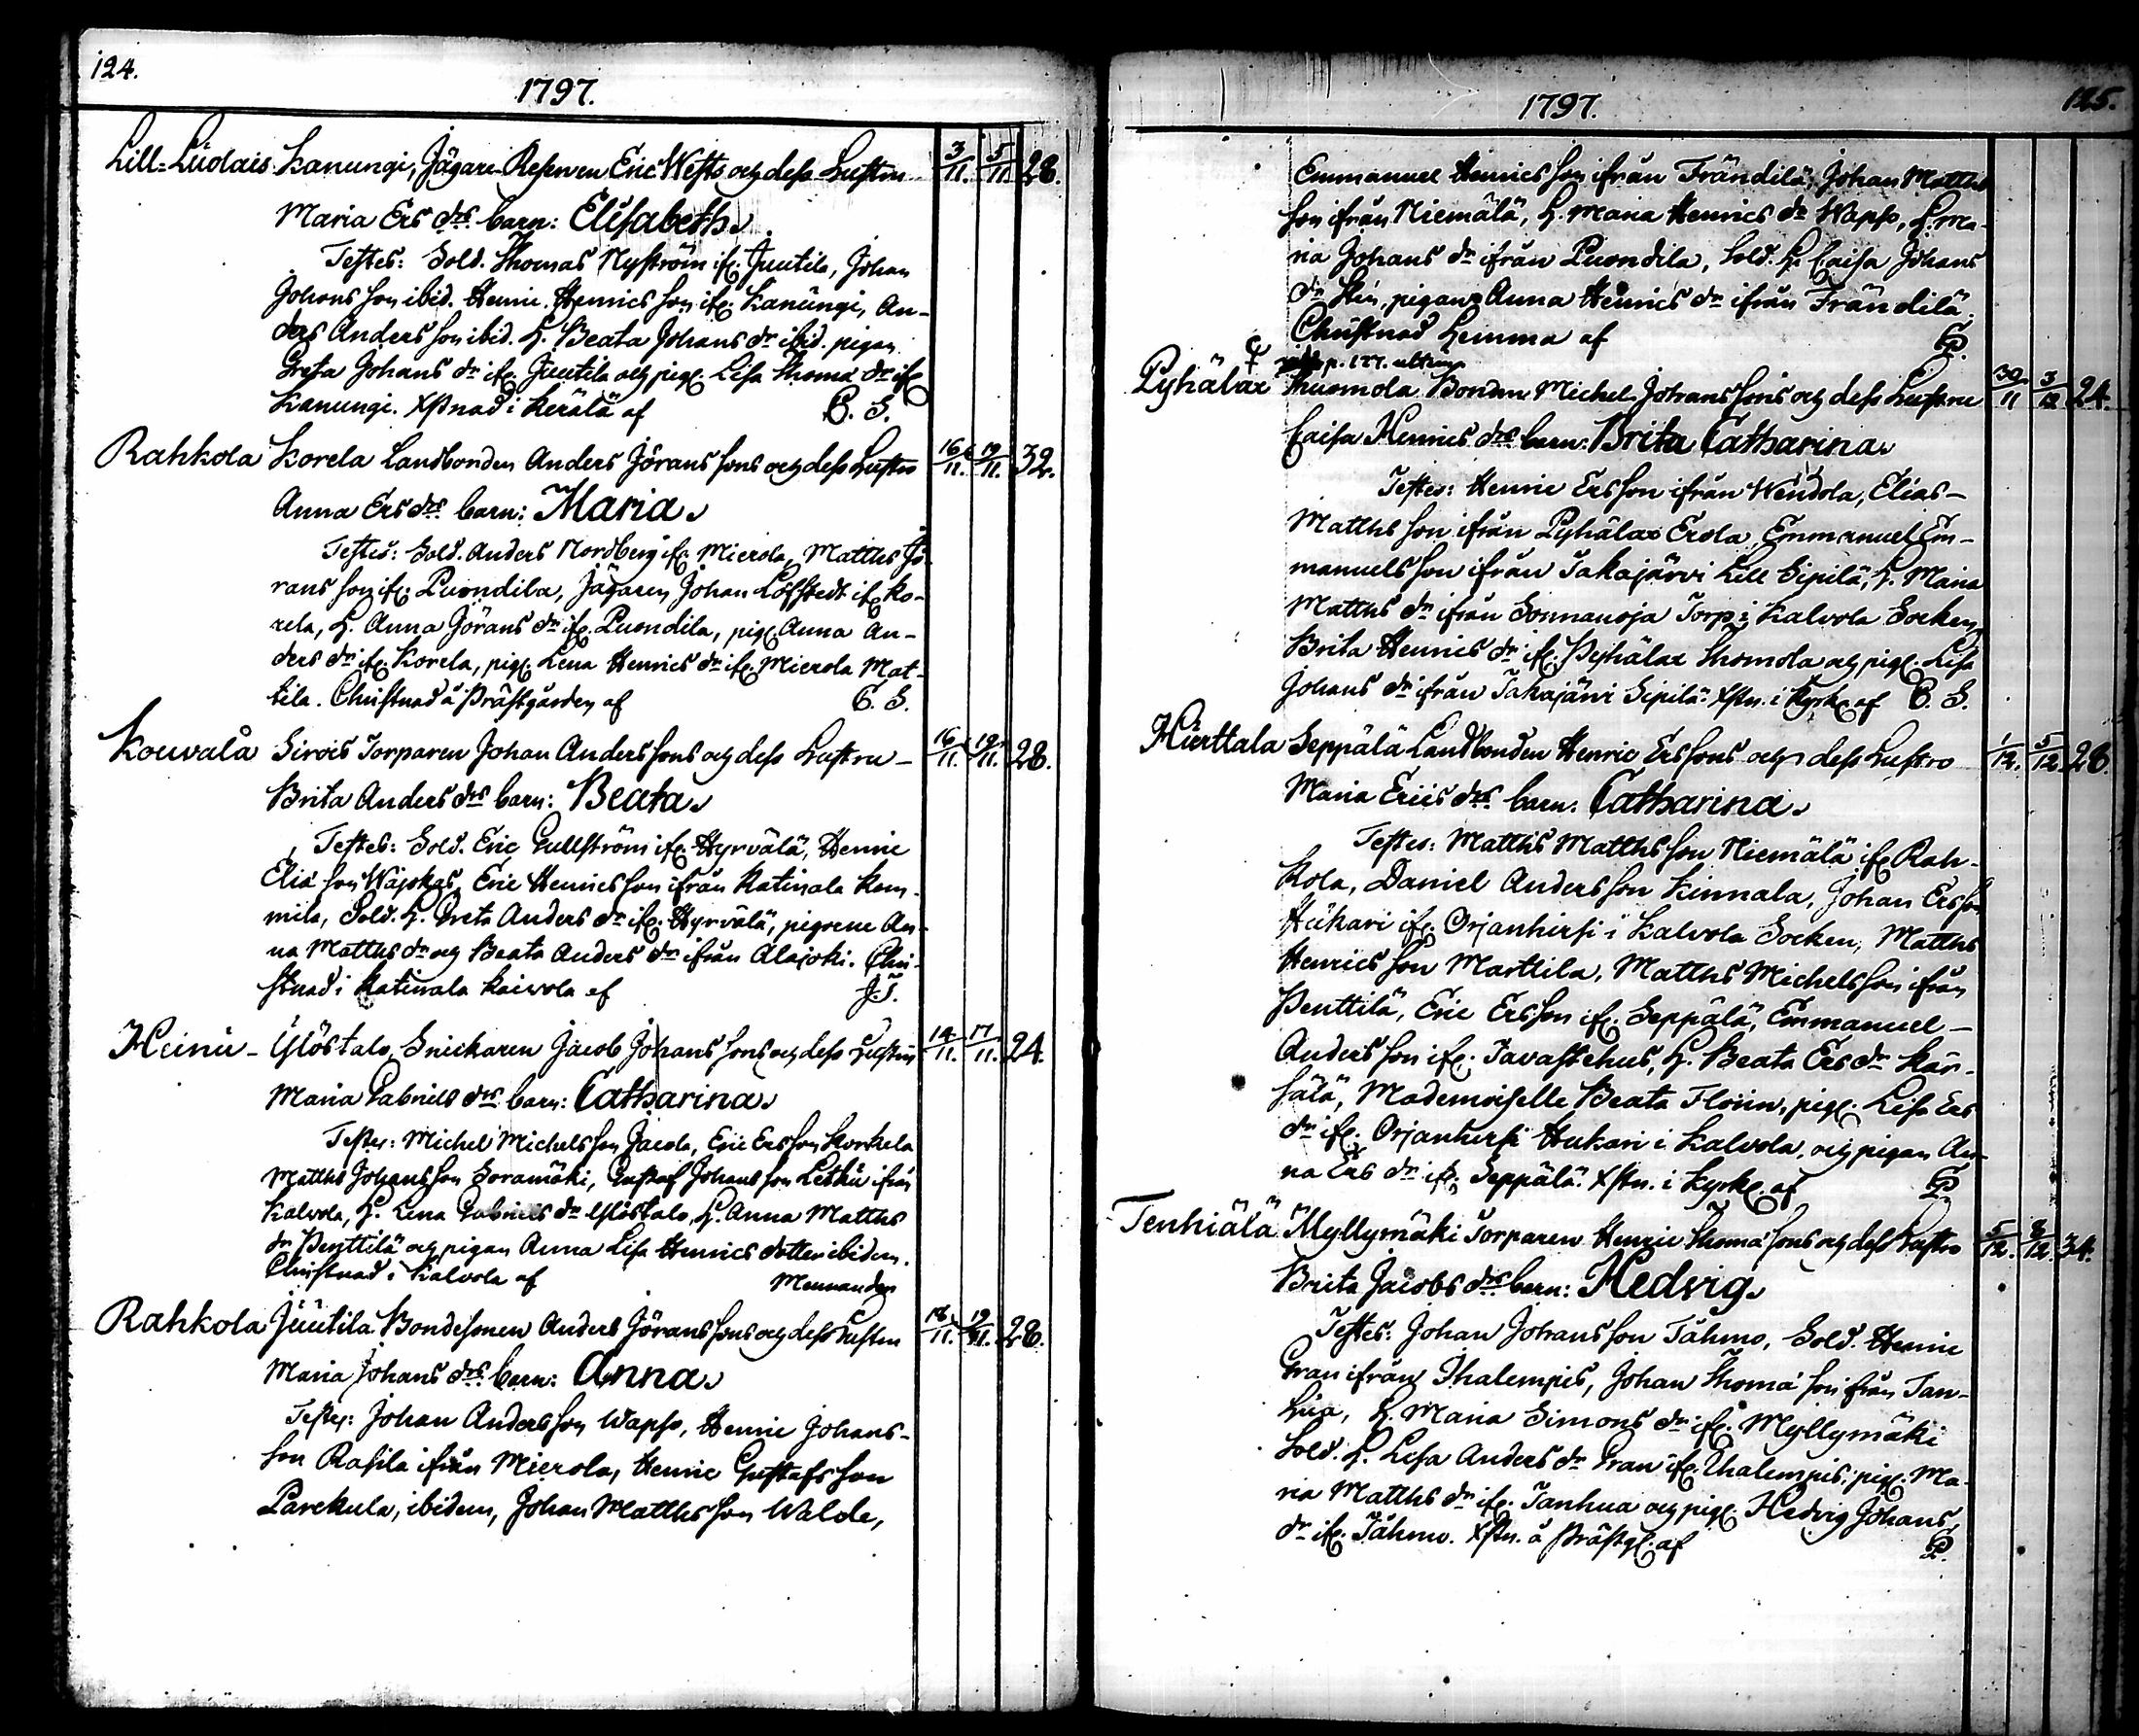 124.
1797.
Lill=Luolais Kanungi, Jägare Reserven Eric Wefts och dess Hustrus 3/11. 5/11 28.
Maria Ers drs barn: Elisabeth.
Testes: Sold. Thomas Nyström ifr. Juutila, Johan
Johans son ibid. Henric Henrics son ifr. Kanungi, An-
ders Anders son ibid. H. Beata Johans dr ibid. pigan
Greta Johans dr ifr. Juutila och pig. Lisa Thomæ dr ifr
Kanungi. Xstnad i Kerälä af C. S.
Rahkola Korela Landbonden Anders Jörans sons och dess Hustrus 16/11. 19/11. 32.
Anna Ers drs barn: Maria.
Testes: Sold. Anders Nordberg ifr. Mierola, Matths Jö-
rans son ifr. Puondila, Jägaren Johan Löfstedt ifr. Ko-
rela, H. Anna Görans dr ifr. Puondila, pig. Anna An-
ders dr ifr. Korela, pig. Lena Henrics dr ifr. Mierola Mat-
tila. Christnad å Prästgården af C. S.
Kouvala Sirois Torparen Johan Anders sons och dess Hustrus 16/11. 19/11. 28.
Brita Anders drs barn: Beata.
Testes: Sold. Eric Gullström ifr. Hyrvälä, Henric
Eliæ son Wäjokas, Eric Henrics son ifrån Katinala Kom-
mila, Sold. H. Greta Anders dr ifr. Hyrvälä, pigorne An-
na Matths dr och Beata Anders dr ifrån Alajoki. Chri-
stnad i Katinala Kaivola af J. T.
Heinu- Ylöstalo, Snickaren Jacob Johans sons och dess Hustrus 14/11. 17/11. 24.
Maria Gabriels drs barn: Catharina.
Testes: Michel Michels son Jacola, Eric Ers son Korkela
Matths Johans son Soramäki, Gustaf Johans son Leskü ifrån
Kalvola, H. Lena Gabriels dr Ylöstalo, H. Anna Matths
dr Penttilä och pigan Anna Lisa Henrics dotter ibidem.
Christnad i Kalvola af Mennander
Rahkola Juutila Bondesonen Anders Jörans sons och dess Hustrus 18/11. 19/11. 28.
Maria Johans drs barn: Anna.
Testes: Johan Anders son Wapso, Henric Johans-
son Rasila ifrån Mierola, Henric Gustafs son
Parckula, ibidem, Johan Matths son Walde,
1797.
125.
Emmanuel Henrics son ifrån Frändilä, Johan Matths
son ifrån Niemälä, H. Maria Henrics dr Wapso, H. Ma-
ria Johans dr ifrån Puondila, Sold. H. Caisa Johans
dr, pigan Anna Henrics dr ifrån Frändilä.
Christnad hemma af
p. 177.
Pyhälax Thuomola Bonden Michel Johans sons och dess Hustrus 30/11 3/12 24.
Caisa Henrics drs barn: Brita Catharina.
Testes: Henric Ers son ifrån Wendola, Elias-
Matths son ifrån Pyhälax Erola, Emmanuel Em-
manuels son ifrån Takajärvi Lill Sipilä, H. Maria
Matths dr ifrån Sonnanoja Torp i Kalvola Socken,
Brita Henrics dr ifr. Pyhälax Thomola och pig. Lisa
Johans dr ifrån Takajärvi Sipilä. Xstn. i Kyrk. af C. S.
Hierttala Seppälä Landbonden Henric Ers sons och dess Hustro 1/12. 5/12 28.
Maria Erics drs barn: Catharina.
Testes: Matths Matths son Niemälä ifr. Rah-
kola, Daniel Anders son Kinnala, Johan Ers son
Hukari ifr. Orjanhirsi i Kalvola Socken, Matths
Henrics son Marttila, Matths Michels son ifrån
Penttilä, Eric Ers son ifr. Seppälä, Emmanuel-
Anders son ifr. Tavastehus, H. Beata Ers dr Kär-
sälä, Mademoiselle Beata Florin, pig. Lisa Ers
dr ifr. Orjanhirsi Hukari i Kalvola, och pigan An-
na Ers dr ifr. Seppälä. Xstn. i Kyrk. af
Tenhiälä Myllymäki Torparen Henric Thomæ sons och dess Hustro 5/12. 8/12 34.
Brita Jacobs drs barn: Hedvig.
Testes: Johan Johans son Tähmo, Sold. Henric
Gran ifrån Ihalempis, Johan Thomæ son ifrån Tan-
hua, H. Maria Simons dr ifr. Myllymäki
Sold. H. Lisa Anders dr Gran ifr. Ihalempis, pig. Ma-
ria Matths dr ifr. Tanhua och pig. Hedvig Johans
dr ifr. Tähmo. Xstn. å Prästg. af